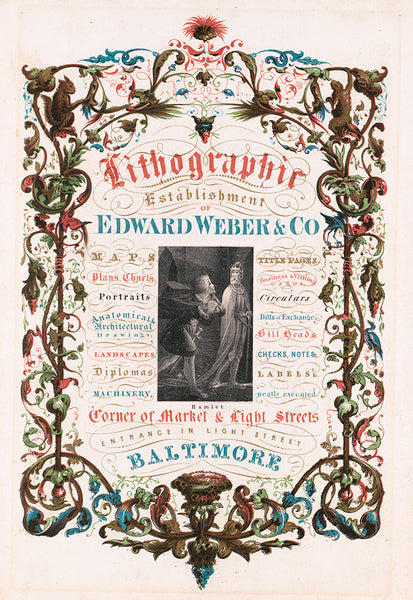 Lithographic
Establishment
OF
EDWARD WEBER & CO
MAPS
Plans, Charts,
Portraits
Anatomical &
Architectural
Drawings,
LANDSCAPES,
Diplomas
MACHINERY,
TITLE PAGES,
Business & Visiting
CARDS
Circulars
Bills of Exchange,
Bill Heads
CHECKS, NOTES,
LABELS &c
neatly executed
Hamlet
Corner of Market & Light Streets
ENTRANCE IN LIGHT STREET
BALTIMORE